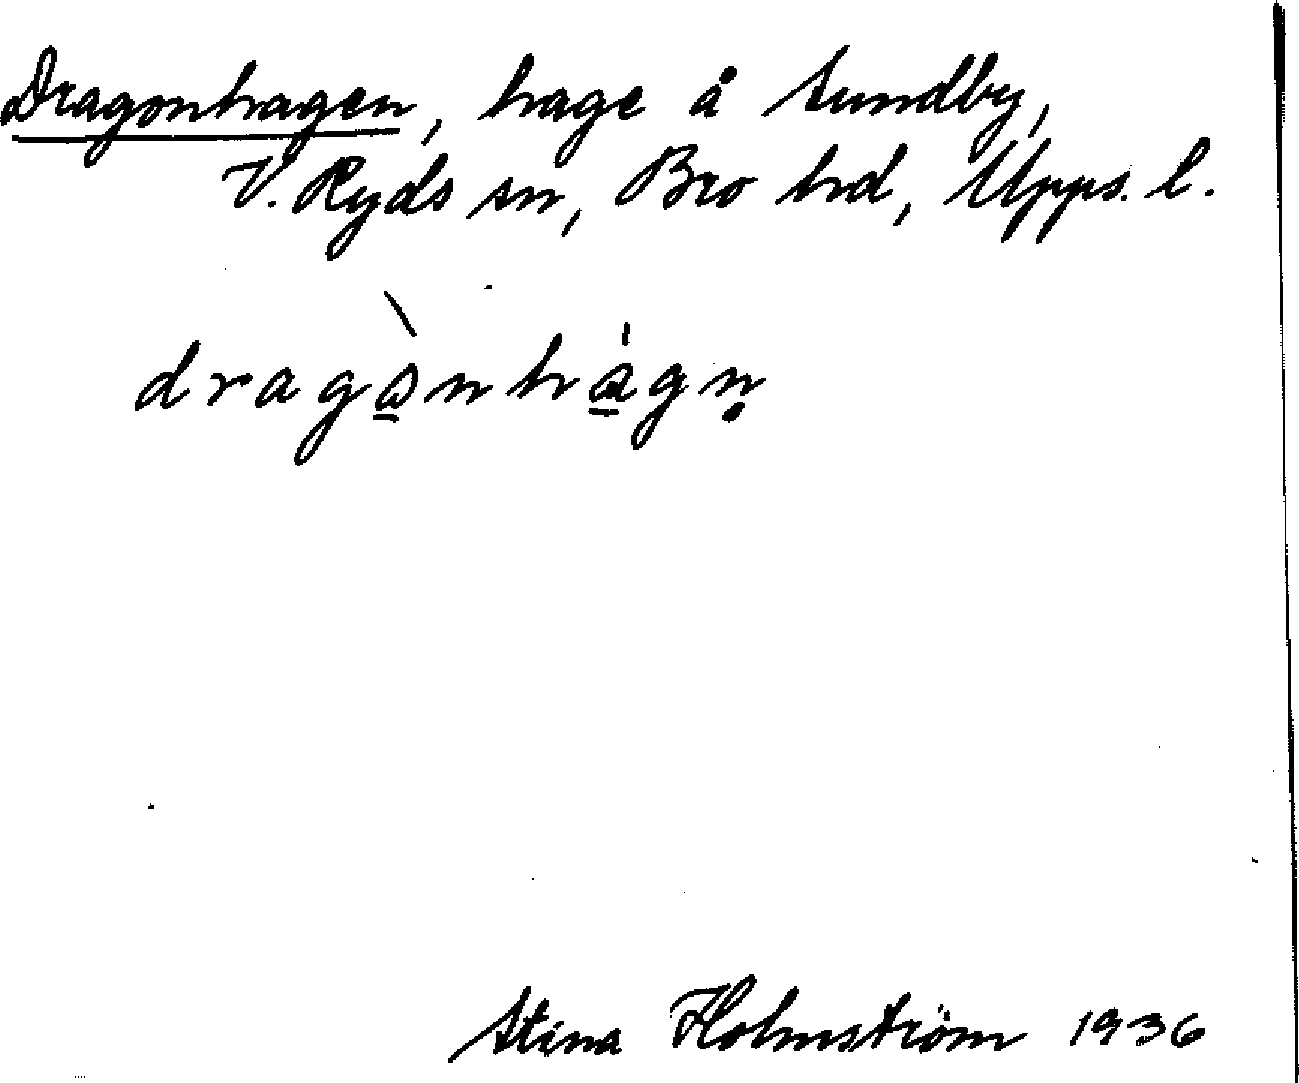 Dragonhagen, hage å Sundby,
V. Ryds sn, Bro hd, Upps. l.
dragὰ̱nhá̱gn̥
Stina Holmström 1936